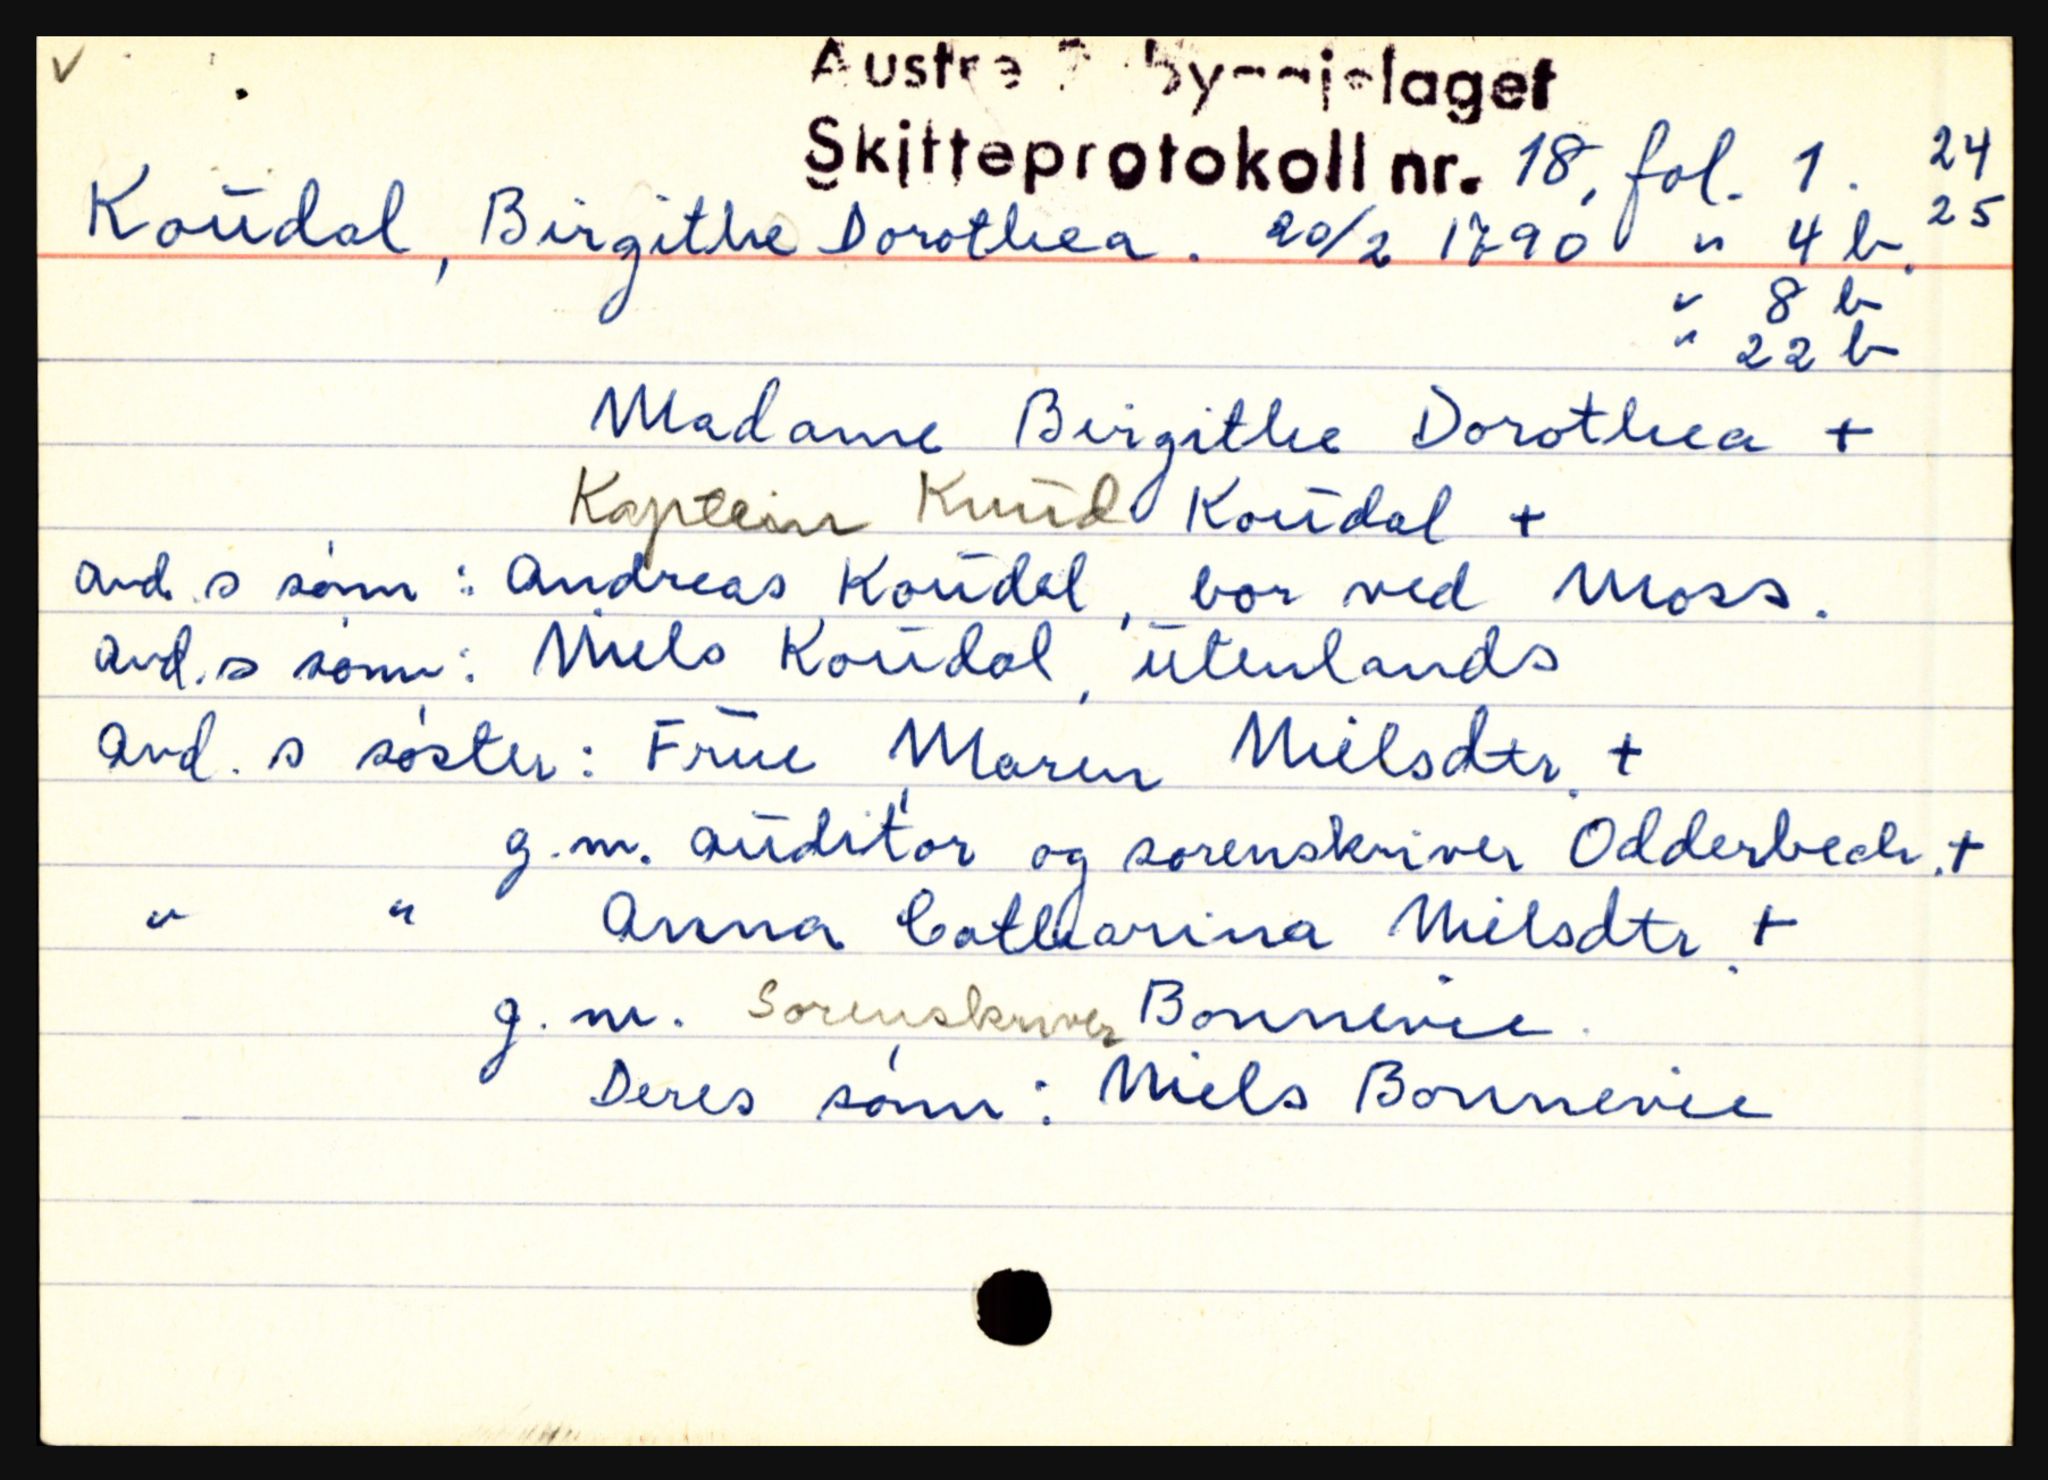 v
Skifteprotokoll nr. 18, fol. 1. 24
Koŭdal, Birgithe Dorothea. 20/2 1790 " 4 b. 25
" 8 b
" 22 b
Madame Birgithe Dorothea +
Kaptein Knŭd Koŭdal +
avd. s sønn : Andreas Koŭdal, bor ved Moss.
avd. s sønn : Niels Koŭdal, ŭtenlands
avd. s søster : Frŭe Maren Nielsdtr. +
g.m. aŭditør og sorenskriver Odderbech. +
" " Anna Catharina Nielsdtr. +
g.m. Sorenskriver Bonnevie.
Deres sønn : Niels Bonnevie